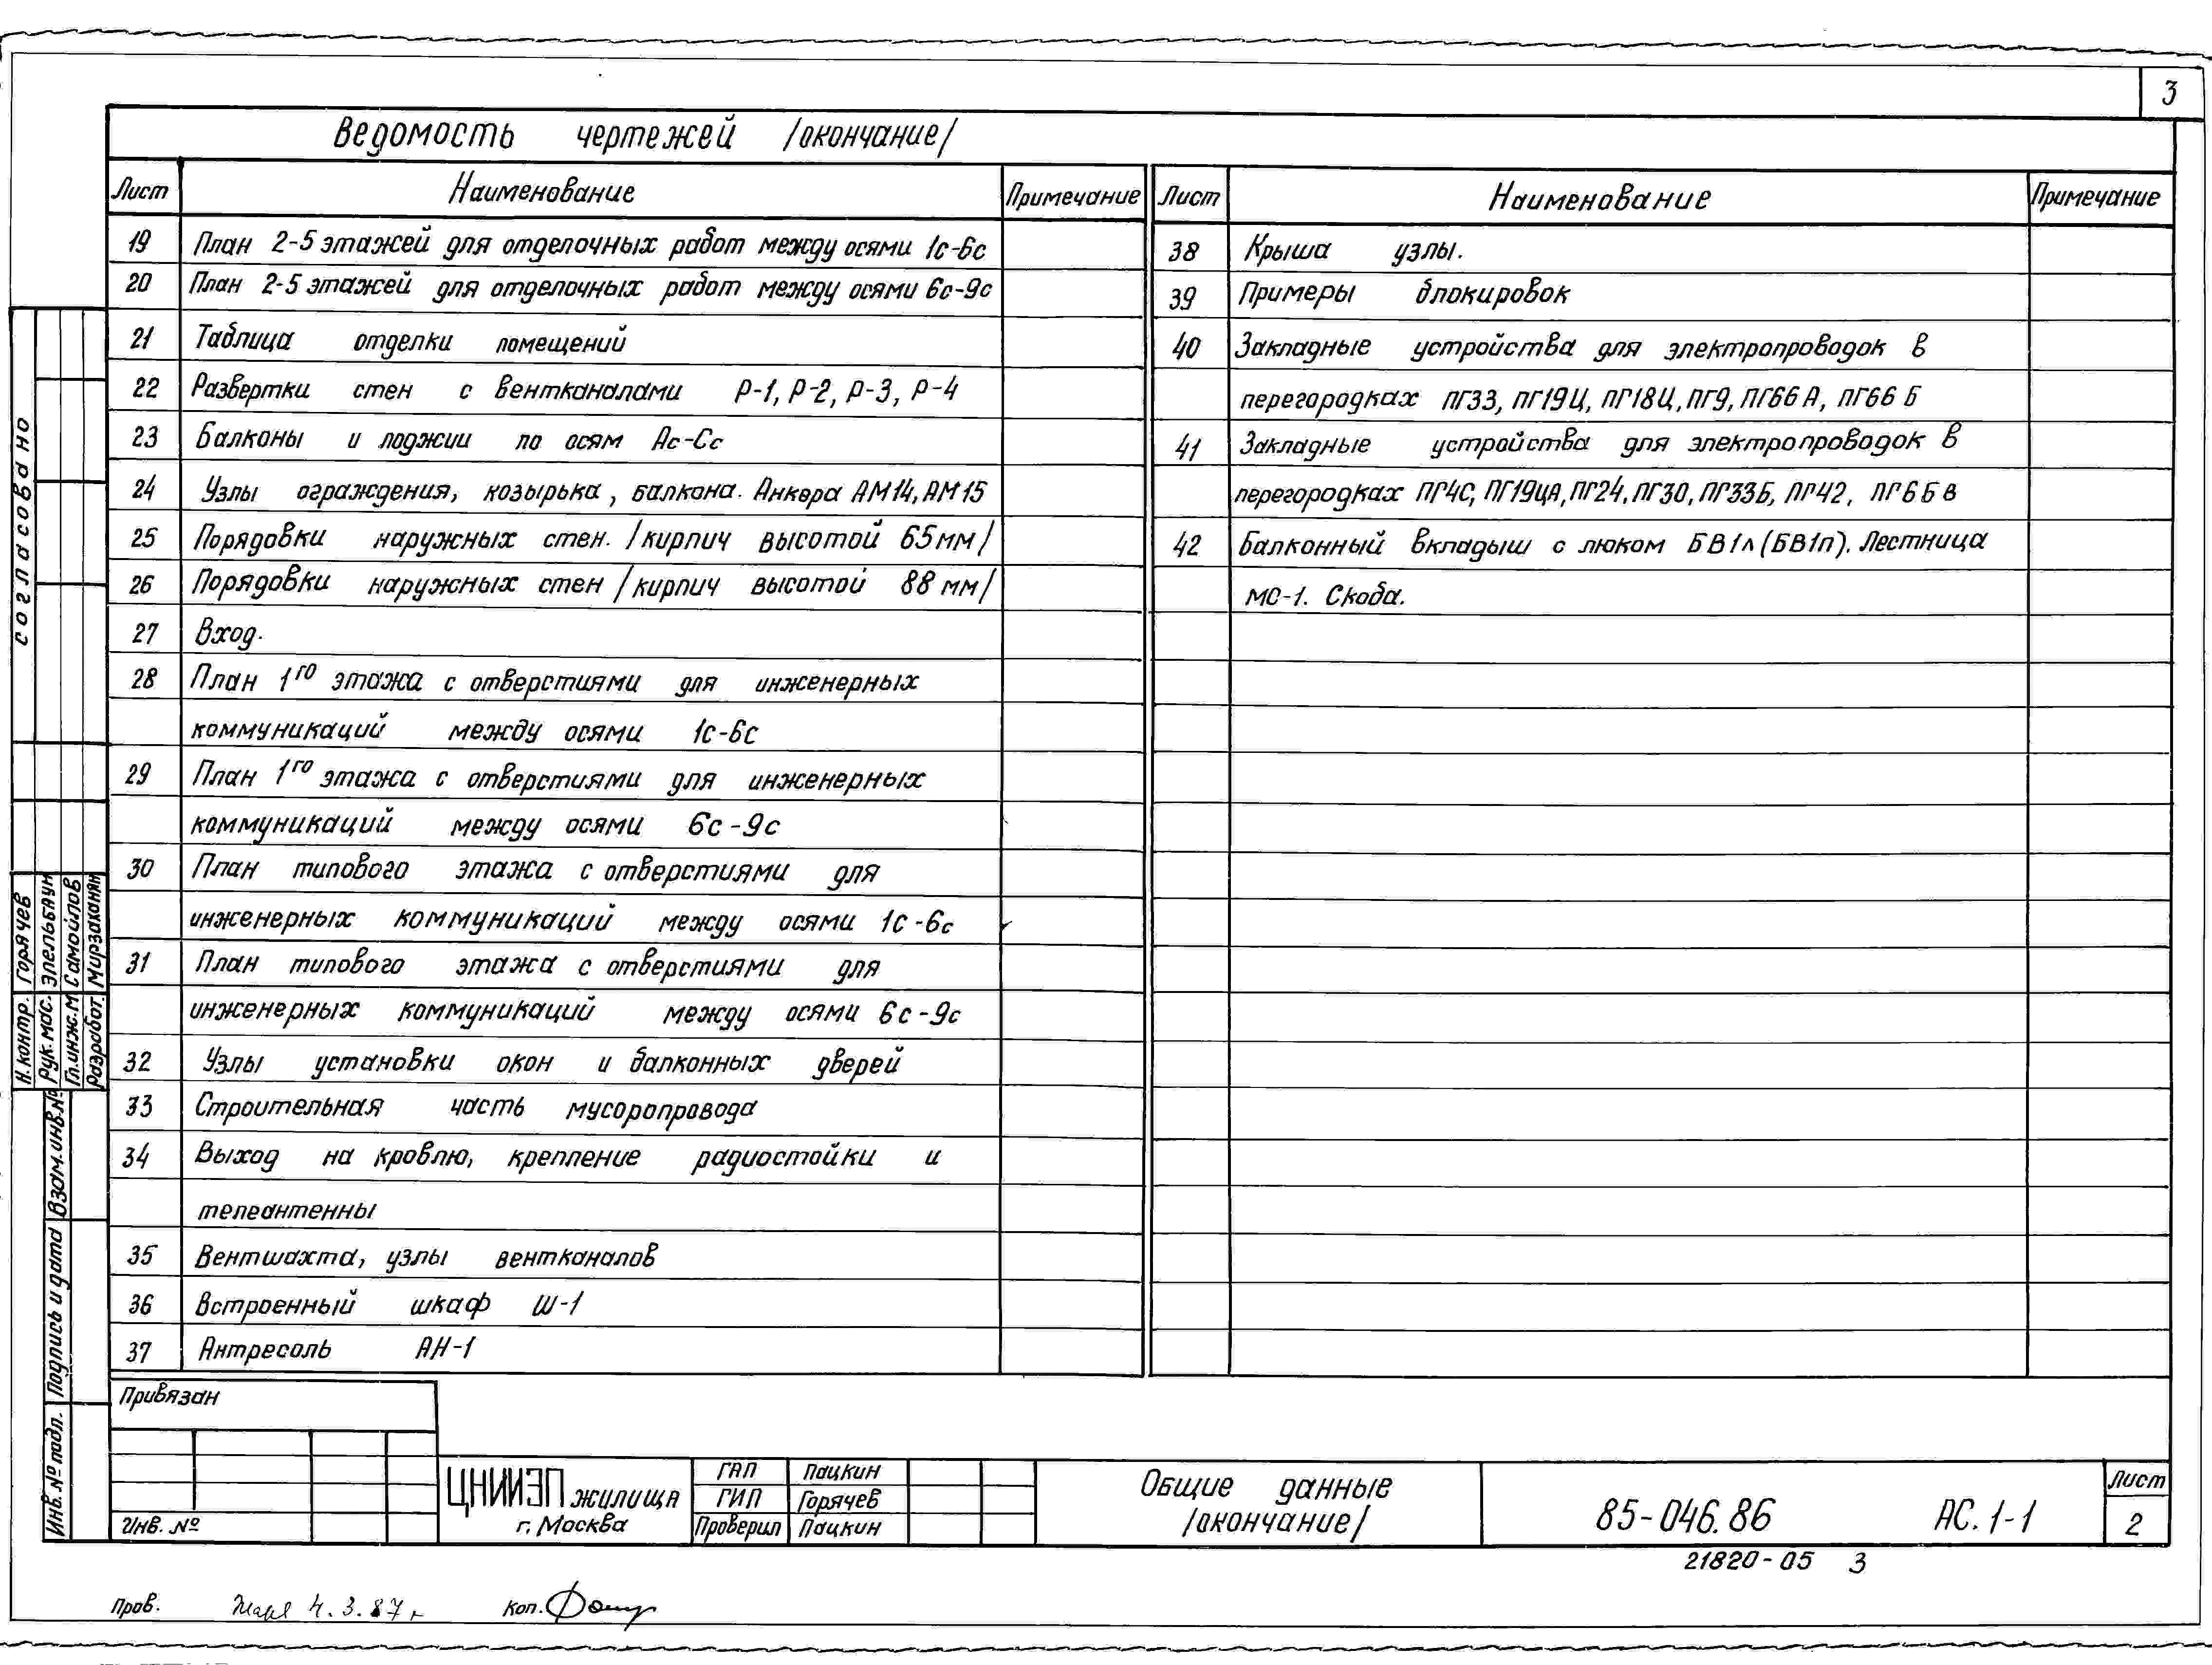 3
Ведомость чертежей /окончание/
Лист Наименование Примечание
19 План 2-5 этажей для отделочных работ между осями 1с-6с
20 План 2-5 этажей для отделочных работ между осями 6с-9с
21 Таблица отделки помещений
22 Развертки стен с вентканалами Р-1, Р-2, Р-3, Р-4
23 Балконы и лоджии по осям Ас-Сс
24 Узлы ограждения, козырька, балкона. Анкера АМ14, АМ15
25 Порядовки наружных стен. /кирпич высотой 65мм/
26 Порядовки наружных стен /кирпич высотой 88 мм/
27 Вход.
28 План 1го этажа с отверстиями для инженерных
коммуникаций между осями 1с-6с
29 План 1го этажа с отверстиями для инженерных
коммуникаций между осями 6с-9с
30 План типового этажа с отверстиями для
инженерных коммуникаций между осями 1с-6с
31 План типового этажа с отверстиями для
инженерных коммуникаций между осями 6с-9с
32 Узлы установки окон и балконных дверей
33 Строительная часть мусоропровода
34 Выход на кровлю, крепление радиостойки и
телеантенны
35 Вентшахта, узлы вентканалов
36 Встроенный шкаф Ш-1
37 Антресоль АН-1
Лист Наименование Примечание
38 Крыша узлы.
39 Примеры блокировок
40 Закладные устройства для электропроводок в
перегородках ПГ33, ПГ19Ц, ПГ18Ц, ПГ9, ПГ66А, ПГ66 Б
41 Закладные устройства для электропроводок в
перегородках ПГ4С, ПГ19ЦА, ПГ24, ПГ30, ПГ33Б, ПГ42, ПГ6Б в
42 Балконный вкладыш с люком БВ1л (БВ1п). Лестница
МС-1. Скоба.
согласовано
Н.контр. Горячев
Рук.мас. Эпельбаун
Гл.инж.М Самойлов
Разработ. Мирзаханян
Взам.инв.№
Подпись и дата
Инв.№ подл.
Привязан
Инв. №
ЦНИИЭП жилища
г. Москва
ГАП Пацкин
ГИП Горячев
Проверил Пацкин
Общие данные
/окончание/
85-046.86 АС.1-1
Лист
2
21820-05 3
Пров. 4.3.87г
Коп.